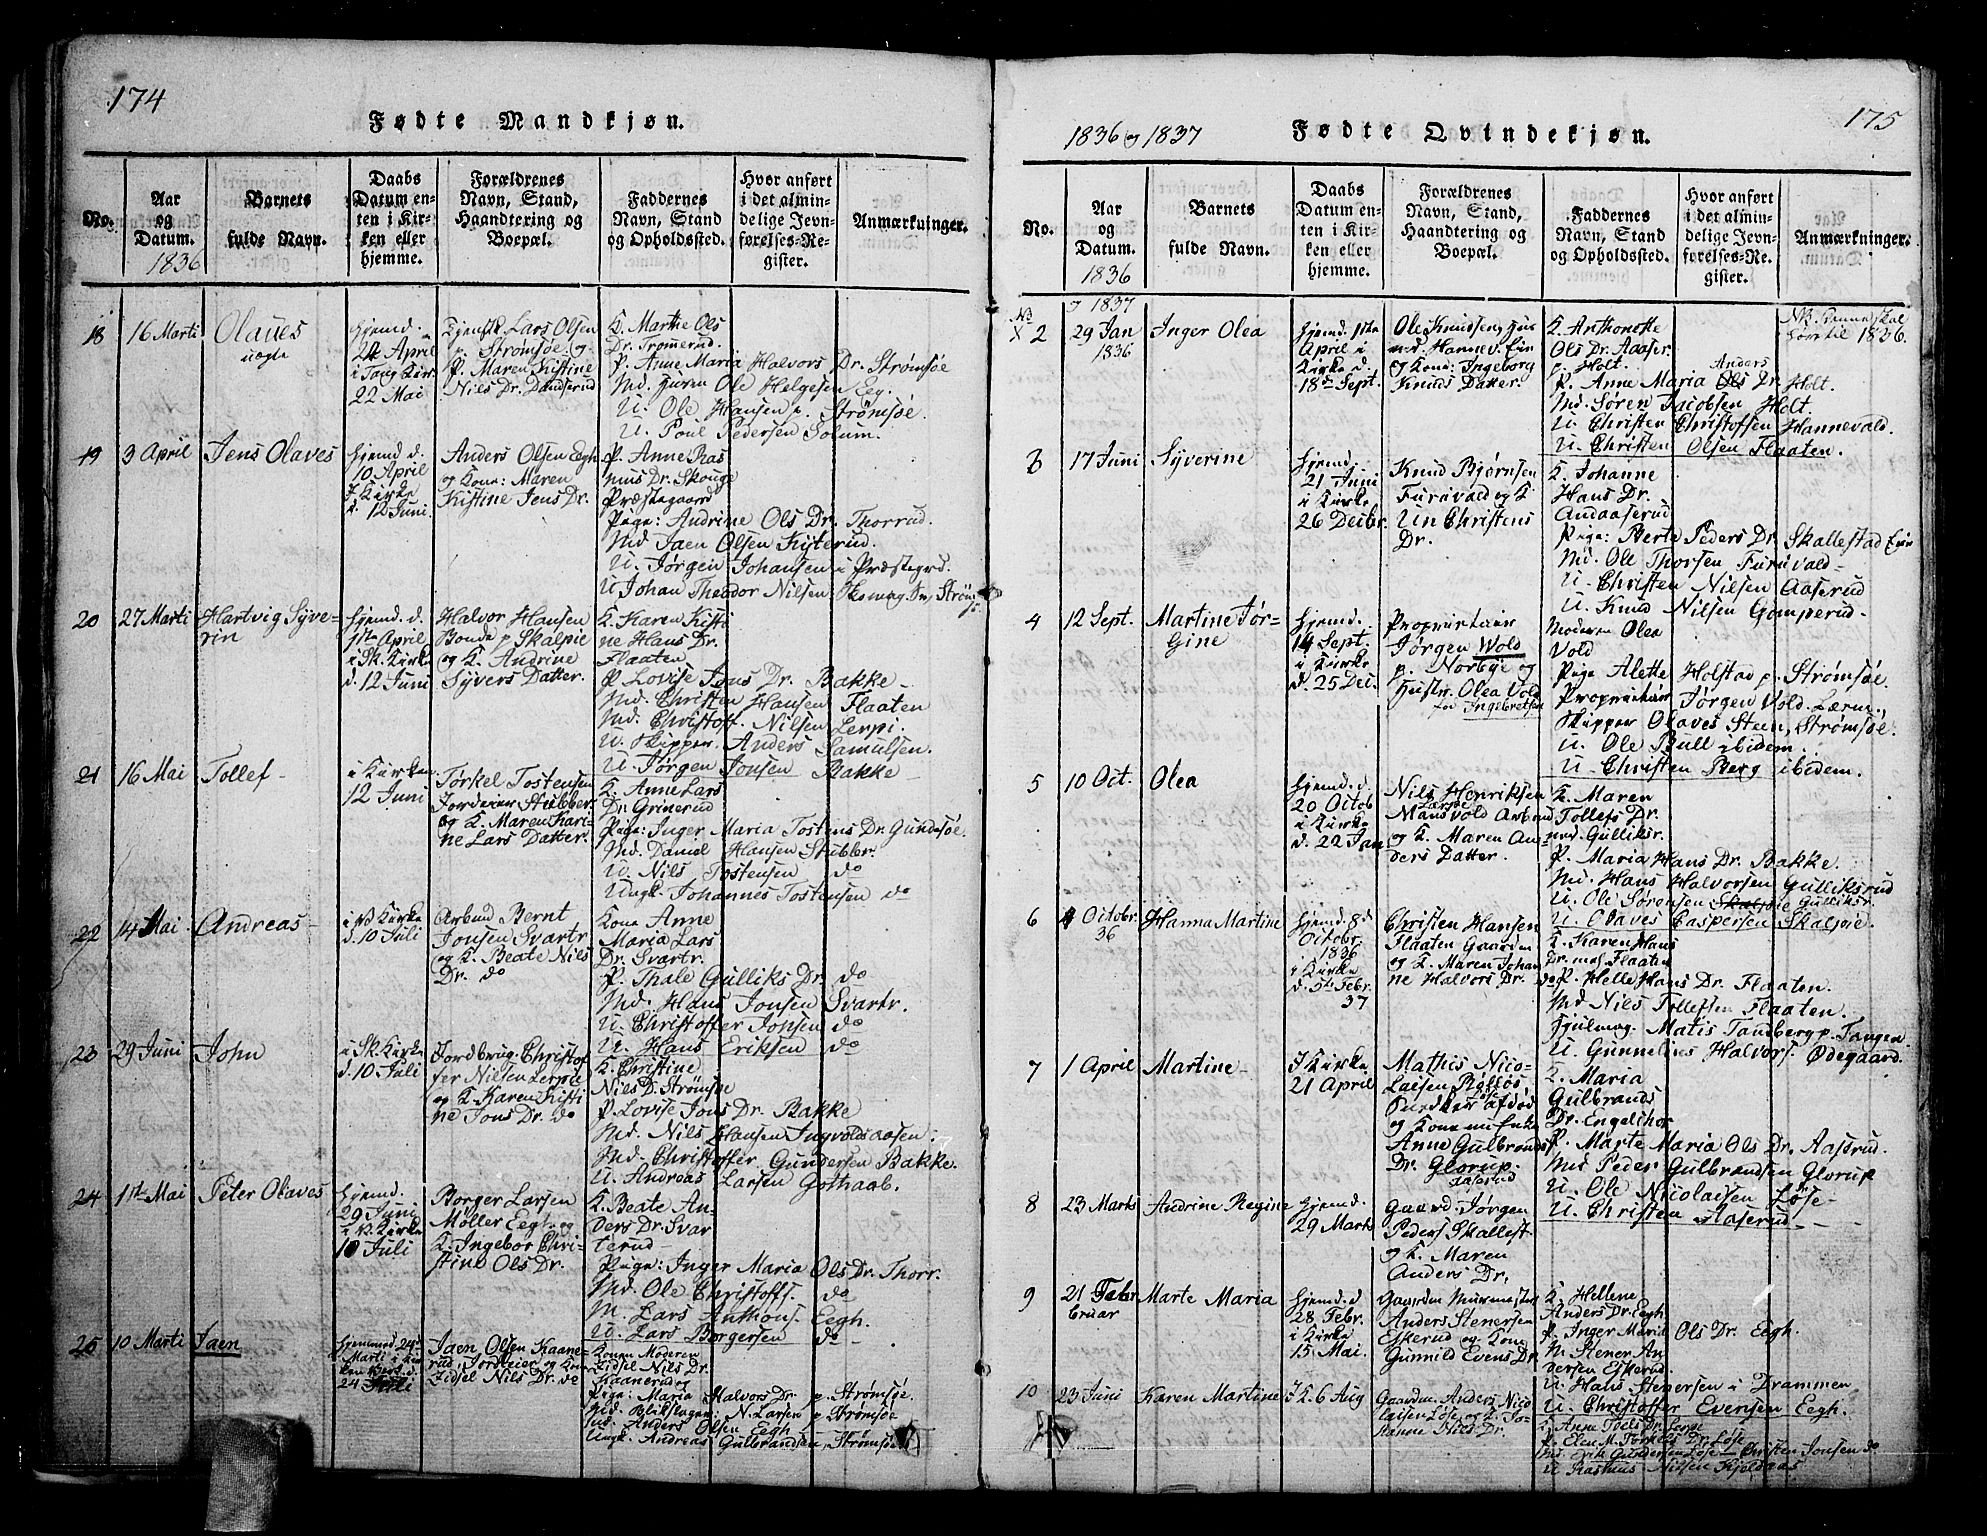 174
Fødte Mandkjøn.
No.
Aar
og
Datum.
1836
Barnets
fulde Navn.
Daabs
Datum en-
ten i Kir-
ken eller
hjemme.
Forældrenes
Navn, Stand,
Haandtering og
Boepæl.
Faddernes
Navn, Stand
og Opholdssted.
Hvor anført
i det almin-
delige Jevn-
førelses-Re-
gister.
Anmærkninger.
18
16 Marti
Olaves
uægte
hjemd.
24 April
i Tang Kir.
22 Mai
Lars Olsen
p. Strømsøe og
P. Maren Kistine
Nils Dr.
K. Marthe Ols
Dr. Tromerud.
P. Anne Maria Halvors Dr. Strømsøe
Md. Ole Helgesen Eeg.
U. Ole Hansen p. Strømsøe.
U. Poul Pedersen Solum.
19
3 April
Jens Olaves
hjemd d.
10 April
I Kirke
d. 12 Juni.
Anders Olsen Eegh
og Kona: Maren
Kistine Jens Dr.
P. Anne Ras
mus Dr. Skouge
Præstegaard
Pige: Andrine Ols Dr. Thorrud.
Md Jaen Olsen Kijterud.
U. Jørgen Johansen i Præstegrd.
U Johan Theodor Nilsen Strøms
20
27 Marti
Hartvig Syve-
rin
hjemd. d.
1ste April
i Sk. Kirke
d. 12 Juni
Halvor Hansen
Bonde p Skalpie
og K. Andrine
Syvers Datter.
K. Karen Kisti
ne Hans Dr.
Flaaten
P. Lovise Jons Dr. Bakke
Md. Christen Hansen Flaaten
Md. Christoff. Nilsen Lerpi.
U. Skipper. Anders Samulsen.
U. Jørgen Jonsen Bakke
21
16 Mai
Tollef
i Kirken
12 Juni
Torkel Tostensen
Jordeier Stubber
og K. Maren Kari-
ne Lars Datter.
K. Anne Lars
Dr. Grinerud
Pige: Inger Maria Tostens Dr. Gundesøe.
Md. Daniel Hansen Stubbr.
U. Nils Tostensen do
Ungk. Johannes Tostensen do
22
14 Mai
Andreas
i Kirke
d. 10 Juli
Arbmd Bernt
Jonsen Svartr
og K. Beate Nils
Dr. do
Kona Anne
Maria Lars
Dr. Svartr.
P. Thale Gulliks Dr. do
Md. Hans Jonsen Svartr.
U. Christoffer Jonsen do
U. Hans Eriksen do
23
29 Juni
John
i Sk. Kirke
d. 10 Juli
Jordbrug. Christof
fer Nilsen Lerpie
og K. Karen Kisti
ne Jons Dr. do
K. Christine
Nils D. Strømsøe
P. Lovise Jons Dr. Bakke
Md. Nils Hansen Ingvoldsaasen:
Md. Christoffer Gundersen Bakke.
U. Andreas Larsen Gothaab.
24
1ste Mai
Peter Olaves
hjemd.
29 Juni
i Kirke
10 Juli
Borger Larsen
Møller Eegh og
K. Ingebor Chri-
stine Ols Dr.
K. Beate An-
ders Dr. Svar
terud
Pige: Inger Maria Ols Dr. Thorr.
Md. Ole Christoffs. do
M. Lars Anthons. Eegh.
U. Lars Borgersen do
25
10 Marti
Jaen
24
Marti
24 Juli
Jaen Olsen Kaane-
rud, Jordeier og Kon
Zidsel Nils Dr. do
Konen Moderen
Zidsel Nils Dr.
Kaanerud
Pige: Maria Halvors Dr p. Strømsøe
Md. Blikslager: N. Larsen p. Strømsøe
Md. Anders Olsen Eegh
Ungk. Andreas Gulbrandsen, Strømsøe
175
1836 og 1837
Fødte Qvindekjøn.
No.
Aar
og
Datum.
1836
og 1837
Barnets
fulde Navn.
Daabs
Datum en-
ten i Kir-
ken eller
hjemme.
Forældrenes
Navn, Stand,
Haandtering og
Boepæl.
Faddernes
Navn, Stand
og Opholdssted.
Hvor anført
i det almin-
delige Jevn-
førelses-Re-
gister.
Anmærkninger.
NB
X 2
29 Jan
1836
Inger Olea
hjemd. 1ste
April i
Kirke d.
18de Sept.
Ole Knudsen,
og Kona: Ingeborg
Knuds Datter.
K. Anthonette
Ols Dr. Aaser.
p. Holt.
Anders
P. Anne Maria Ols Dr. Holt.
Md. Søren Jacobsen Holt.
U. Christen Christoffsen Hannevald.
U. Christen Olsen Flaaten.
NB. Denne skal
til 1836.
3
17 Juni
Syverine
hjemd.
21 Juni
i Kirke
26 Decbr.
Knud Bjørnsen
Furuvald og K
Christens
Dr.
K. Johanne
Hans Dr.
Andaaserud
Pige: Berte Peders Dr. Skallestad Eier
Md. Ole Thorsen Furuvald
U. Christen Nilsen Aaserud
U. Knud Nilsen Gomperud
4
12 Sept.
Martine Jør-
gine
hjemd.
14 Sept.
i Kirke
d. 25 Dec.
Proprietair
Jørgen Wold
p. Norbye og
Hustr. Olea Vold
før Ingebretsen
Moderen Olea
Vold
Pige Alette Holstad p. Strømsøe.
Proprietair Jørgen Vold.
Skipper Olaves Steen, Strømsøe:
U. Ole Bull ibidem.
U. Christen Berg ibidem.
5
10 Oct.
Olea
hjemd. d.
20 Octob
i Kirke
d. 22 Jan
Nils Henriksen
Mansvold Arbmd
og K. Maren An-
ders Datter.
K. Maren
Tollefs Dr.
Gulliksr.
P. Maria Hans Dr. Bakke.
Md. Hans Halvorsen Gulliksrud
U. Ole Sørensen Gulliksr.
U. Olaves Caspersen Skalsøie.
6
4 Octobr.
36
Hanna Martine
hjemd 8 d
Octobr.
1836
i Kirke
d. 5te Febr.
37
Christen Hansen
Flaaten Gaardm
og K. Maren Johan
ne Halvors Dr. do
K. Karen Hans
Dr. Flaaten
P. Helle Hans Dr. Flaaten.
Md Nils Tollefsen Flaaten.
Hjulmag. Matis Tandberg p. Tangen.
U. Gunnelius Halvors. Ødegaard.
7
1 April
Martine
I Kirke
21 April
Mathis Nico-
laisen
afdød
og Kona
Anne Gulbrands
Dr. Glorup.
Aaserud
K. Maria
Gulbrands
Dr. Engelihor
P. Marte Maria Ols Dr. Aaserud.
Md Peder Gulbrandsen Glorup
U. Ole Nicolaisen Løse
U. Christen Aaserud
8
23 Marts
Andrine Regine
hjemd.
29 Marts
Gaard. Jørgen
Peders Skallest
og K. Maren
Anders Dr.
9
21 Febr
bruar
Marte Maria
hjemd. d
28 Febr.
i Kirke
15 Mai.
Gaardm Murmester
Anders Stenersen
Eskerud og Kone
Gunnild Evens Dr
K. Hellene
Anders Dr. Eegh
P. Inger Maria Ols Dr. Eegh.
M. Stener An-
dersen Eskerud.
U. Hans Stenersen i Drammen
U. Christoffer Evensen Eegh.
10
23 Juni
Karen Martine
I K. 6 Aug
Gaardm. Anders Nico
laisen Løse og K. Jo-
hanne Nils Dr.
K. Anne Toels Dr. Large
P. Elen M. Torkels Dr. Løse
Md. Erik Gundersen Løse Christen Jonsen do
U Rasmus Nilsen Kjøldaas